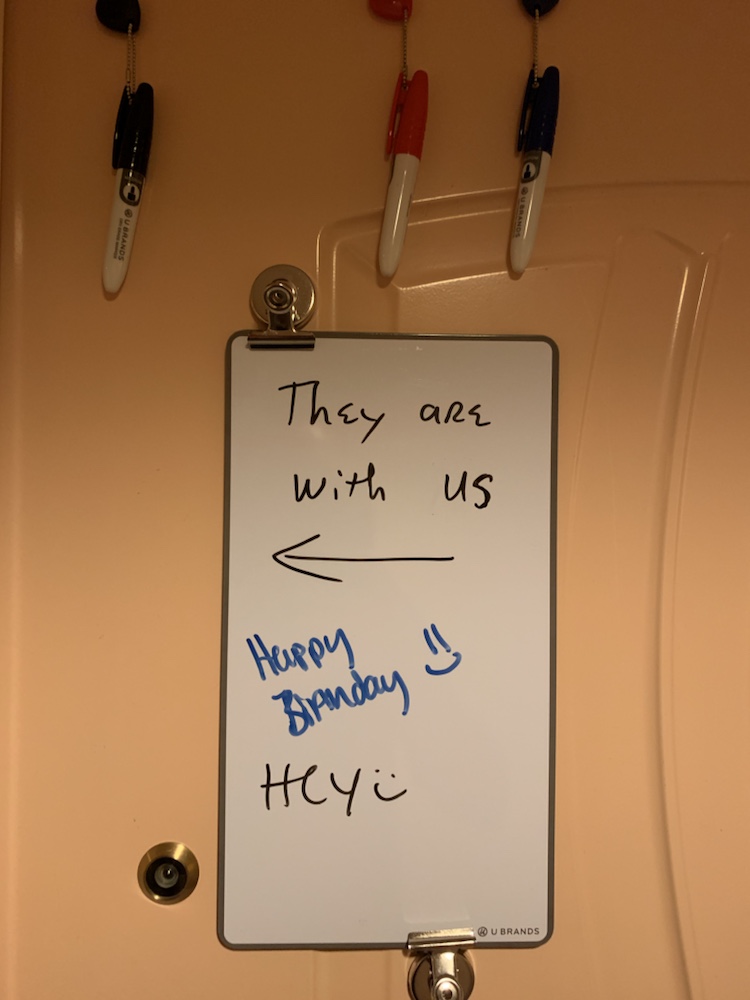 U BRANDS
U BRANDS
They are
with us
←
Happy
Birthday :)
Hey :)
U BRANDS